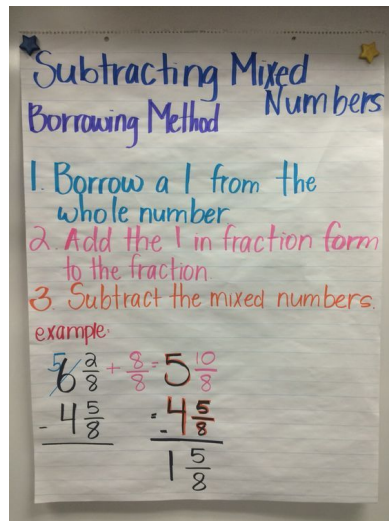 Subtracting Mixed Numbers
Borrowing Method
1. Borrow a 1 from the
whole number
2. Add the 1 in fraction form
to the fraction
3. Subtract the mixed numbers.
example:
5 6 2/8 + 8/8 = 5 10/8
- 4 5/8 - 4 5/8
1 5/8